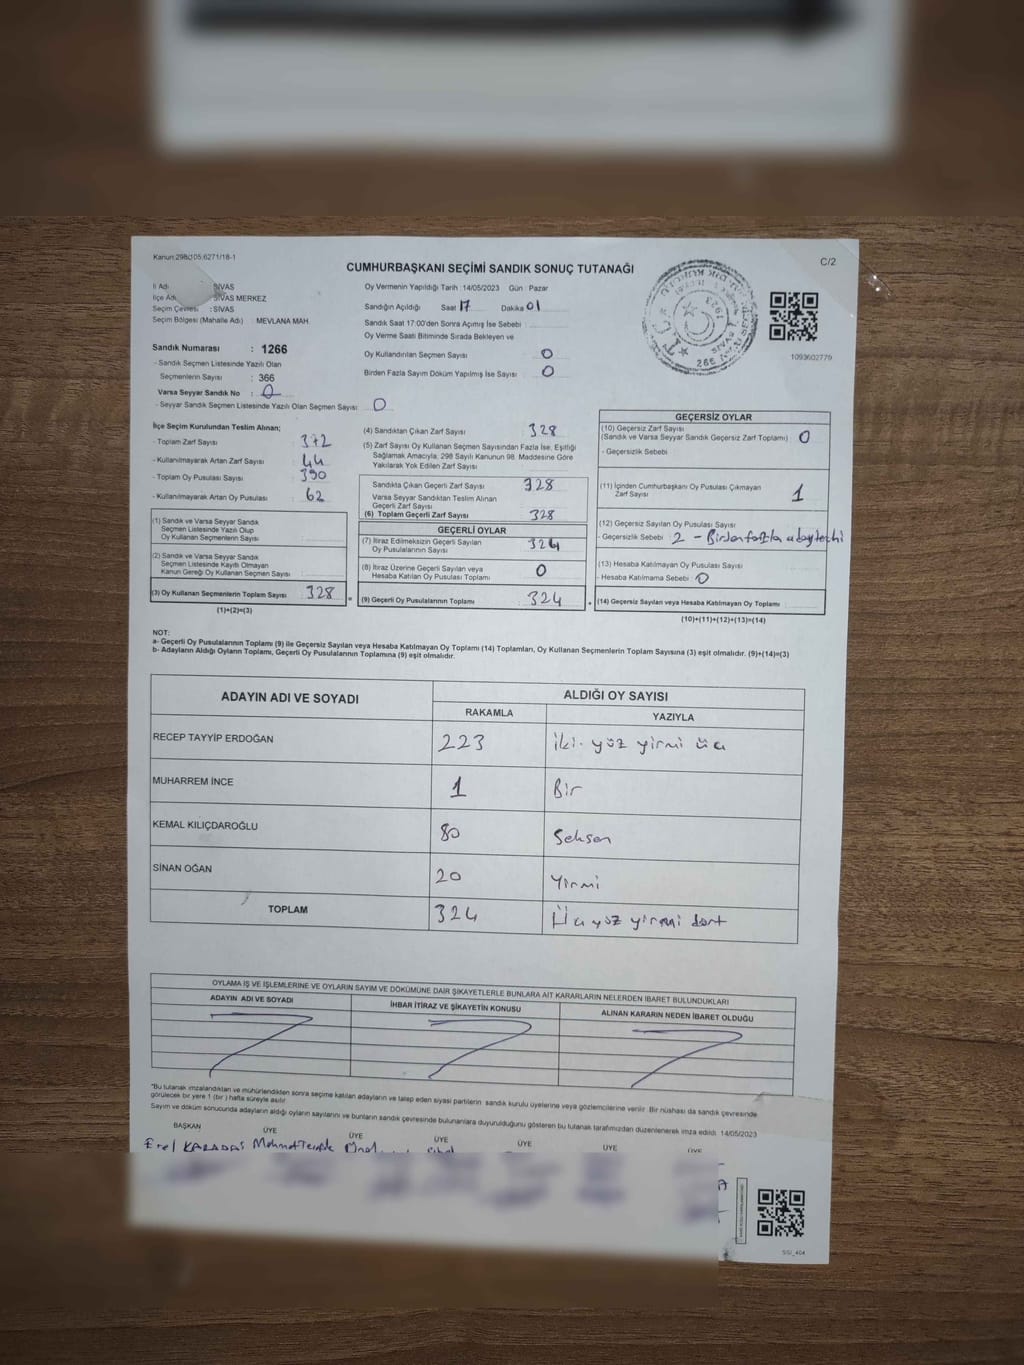 Kanun:298/105,6271/18-1
C/2
CUMHURBAŞKANI SEÇİMİ SANDIK SONUÇ TUTANAĞI
İl Adı : SİVAS
İlçe Adı : SİVAS MERKEZ
Seçim Çevresi : SİVAS
Seçim Bölgesi (Mahalle Adı) : MEVLANA MAH.
Sandık Numarası : 1266
- Sandık Seçmen Listesinde Yazılı Olan
Seçmenlerin Sayısı : 366
Varsa Seyyar Sandık No : 0
- Seyyar Sandık Seçmen Listesinde Yazılı Olan Seçmen Sayısı : 0
Oy Vermenin Yapıldığı Tarih : 14/05/2023 Gün : Pazar
Sandığın Açıldığı Saat 17 Dakika 01
Sandık Saat 17:00'den Sonra Açımış İse Sebebi :
Oy Verme Saati Bitiminde Sırada Bekleyen ve
Oy Kullandırılan Seçmen Sayısı 0
Birden Fazla Sayım Döküm Yapılmış İse Sayısı : 0
1093602779
İlçe Seçim Kurulundan Teslim Alınan;
- Toplam Zarf Sayısı : 372
- Kullanılmayarak Artan Zarf Sayısı : 44
- Toplam Oy Pusulası Sayısı : 390
- Kullanılmayarak Artan Oy Pusulası : 62
(1) Sandık ve Varsa Seyyar Sandık
Seçmen Listesinde Yazılı Olup
Oy Kullanan Seçmenlerin Sayısı :
(2) Sandık ve Varsa Seyyar Sandık
Seçmen Listesinde Kayıtlı Olmayan
Kanun Gereği Oy Kullanan Seçmen Sayısı :
(3) Oy Kullanan Seçmenlerin Toplam Sayısı : 328
(1)+(2)=(3)
(4) Sandıktan Çıkan Zarf Sayısı : 328
(5) Zarf Sayısı Oy Kullanan Seçmen Sayısından Fazla İse, Eşitliği
Sağlamak Amacıyla, 298 Sayılı Kanunun 98. Maddesine Göre
Yakılarak Yok Edilen Zarf Sayısı :
Sandıkta Çıkan Geçerli Zarf Sayısı : 328
Varsa Seyyar Sandıktan Teslim Alınan
Geçerli Zarf Sayısı :
(6) Toplam Geçerli Zarf Sayısı : 328
GEÇERLİ OYLAR
(7) İtiraz Edilmeksizin Geçerli Sayılan
Oy Pusulalarının Sayısı : 324
(8) İtiraz Üzerine Geçerli Sayılan veya
Hesaba Katılan Oy Pusulası Toplamı : 0
(9) Geçerli Oy Pusulalarının Toplamı : 324
GEÇERSİZ OYLAR
(10) Geçersiz Zarf Sayısı
(Sandık ve Varsa Seyyar Sandık Geçersiz Zarf Toplamı) : 0
- Geçersizlik Sebebi :
(11) İçinden Cumhurbaşkanı Oy Pusulası Çıkmayan
Zarf Sayısı : 1
(12) Geçersiz Sayılan Oy Pusulası Sayısı :
- Geçersizlik Sebebi : 2 - Birden fazla aday
(13) Hesaba Katılmayan Oy Pusulası Sayısı :
- Hesaba Katılmama Sebebi : 0
(14) Geçersiz Sayılan veya Hesaba Katılmayan Oy Toplamı :
(10)+(11)+(12)+(13)=(14)
NOT:
a- Geçerli Oy Pusulalarının Toplamı (9) ile Geçersiz Sayılan veya Hesaba Katılmayan Oy Toplamı (14) Toplamları, Oy Kullanan Seçmenlerin Toplam Sayısına (3) eşit olmalıdır. (9)+(14)=(3)
b- Adayların Aldığı Oyların Toplamı, Geçerli Oy Pusulalarının Toplamına (9) eşit olmalıdır.
ADAYIN ADI VE SOYADI ALDIĞI OY SAYISI
RAKAMLA YAZIYLA
RECEP TAYYİP ERDOĞAN 223 iki yüz yirmi üç
MUHARREM İNCE 1 Bir
KEMAL KILIÇDAROĞLU 80 Seksen
SİNAN OĞAN 20 Yirmi
TOPLAM 324 Üç yüz yirmi dört
OYLAMA İŞ VE İŞLEMLERİNE VE OYLARIN SAYIM VE DÖKÜMÜNE DAİR ŞİKAYETLERLE BUNLARA AİT KARARLARIN NELERDEN İBARET BULUNDUKLARI
ADAYIN ADI VE SOYADI İHBAR İTİRAZ VE ŞİKAYETİN KONUSU ALINAN KARARIN NEDEN İBARET OLDUĞU
"Bu tutanak imzalandıktan ve mühürlendikten sonra seçime katılan adayların ve talep eden siyasi partilerin sandık kurulu üyelerine veya gözlemcilerine verilir. Bir nüshası da sandık çevresinde
görülecek bir yere 1 (bir) hafta süreyle asılır.
Sayım ve döküm sonucunda adayların aldığı oyların sayılarını ve bunların sandık çevresinde bulunanlara duyurulduğunu gösteren bu tutanak tarafımızdan düzenlenerek imza edildi. 14/05/2023
BAŞKAN ÜYE ÜYE ÜYE ÜYE ÜYE ÜYE
Erel KARADAŞ
SSİ_404